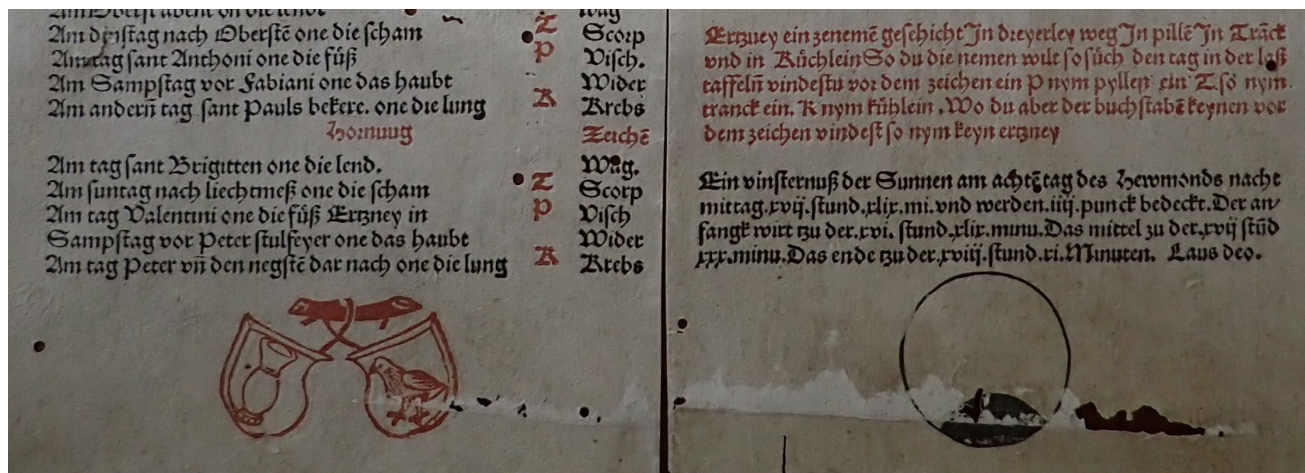 Am Oberst abent on die lendt Wag
Am dinstag nach Oberstē one die scham T Scorp
Am tag sant Anthoni one die füß P Visch.
Am Sampstag vor Fabiani one das haubt Wider
Am andern̄ tag sant Pauls bekere. one die lung K Krebs
Hornung Zeichē
Am tag sant Brigitten one die lend. Wag.
Am suntag nach liechtmeß one die scham T Scorp
Am tag Valentini one die füß Ertzney in P Visch
Sampstag vor Peter stulfeyer one das haubt Wider
Am tag Peter vn̄ den negstē dar nach one die lung K Krebs
Ertzney ein zenemē geschicht In dreyerley weg In pillē In Trāck
vnd in Küchlein So du die nemen wilt so süch den tag in der laß
taffeln̄ vindestu vor dem zeichen ein P nym pyllen ein T so nym
tranck ein. K nym kühlein. Wo du aber der buchstabē keynen vor
dem zeichen vindest so nym keyn ertzney
Ein vinsternuß der Sunnen am achtē tag des Hewmonds nacht
mittag.xvij.stund.xlix.mi.vnd werden.iiij.punck bedeckt.Der an/
fangk wirt tzu der.xvi. stund.xlix.minu.Das mittel zu der.xvij stūd
xxx.minu.Das ende tzu der.xviij.stund.xi.Minuten. Laus deo.